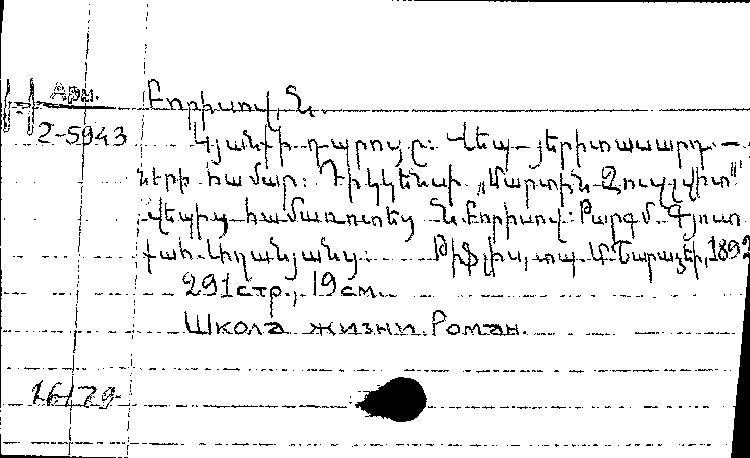 Арм.
2-5943
Բորիսով, Ն.
Կյանքի դպրոցը: Վեպ երիտասարդ-
ների համար: Դիկկենսի „Մարտին Չուզլվիտ"
վեպից համառոտեց Ն. Բորիսով: Թարգմ. Գյուտ
քահ. Աղանյանց: Թիֆլիս, տպ. Մ. Շարաձեի, 1892
291 стр., 19 см.
Школа жизни. Роман.
16179